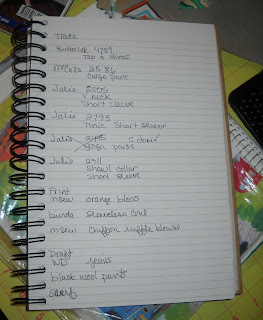 Trace
Butterick 4789
Top & dress
McCalls 2586
Cargo pant
Jalie
V neck
Short sleeve
Jalie 2793
Tonic Short Sleeve
Jalie
Yoga pants
Jalie 2911
Shawl collar
short sleeve
Print
nsew orange blous
burda Sleeveless Cowl
nsew Chiffon ruffle blouse
Draft
WD jeans
black wool pants
Scarf